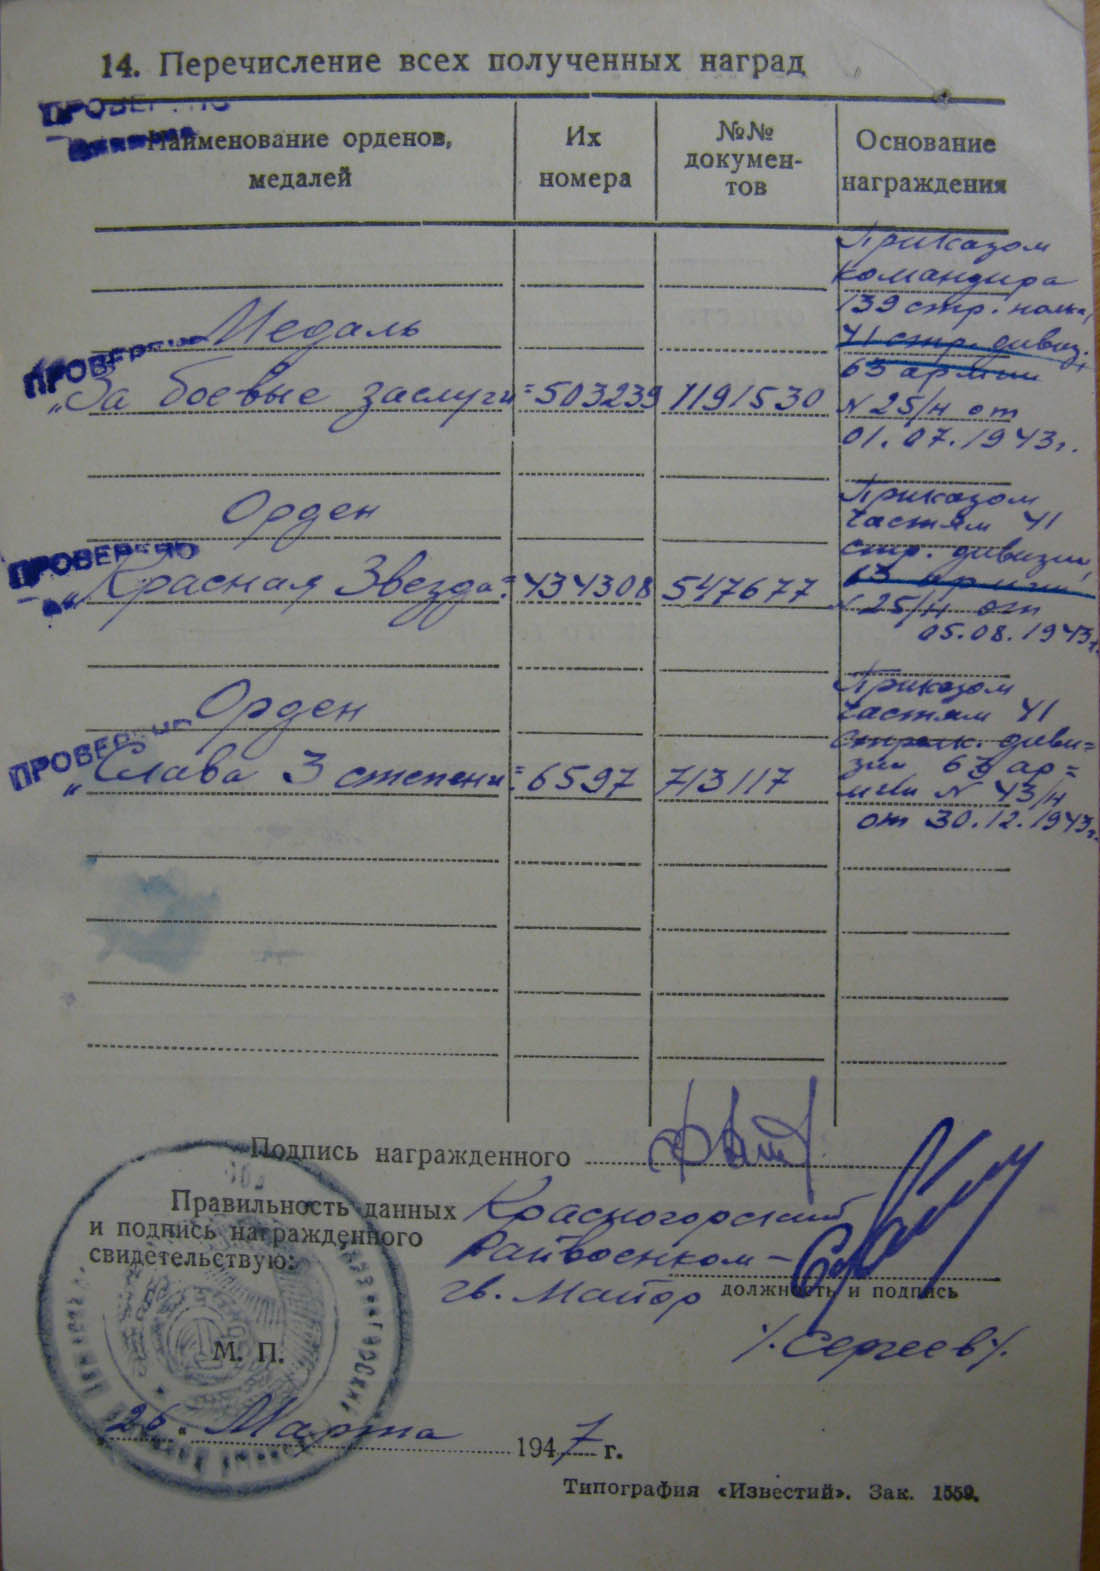 14. Перечисление всех полученных наград
ПРОВЕРЕНО
Наименование орденов, медалей
Их номера
№№ документов
Основание награждения
Приказом
командира
139 стр. полка,
41 стр. дивиз.
63 армии
N 25/н от
01.07.1943г.
ПРОВЕРЕНО
Медаль
„За боевые заслуги"
503239
1191530
Приказом
частям 41
стр. дивизии,
63 армии
N 25/н от
05.08.1943г.
ПРОВЕРЕНО
Орден
„Красная Звезда"
434308
547677
Приказом
частям 41
стрелк. диви=
зии 63 ар=
мии N 43/н
от 30.12.1943г.
ПРОВЕРЕНО
Орден
„Слава 3 степени"
6597
713117
Подпись награжденного
Правильность данных
и подпись награжденного
свидетельствую:
Красногорский
Райвоенком –
гв. Майор
должность и подпись
/Сергеев/.
М. П.
26 " Марта 1947 г.
Типография «Известий». Зак. 1559.